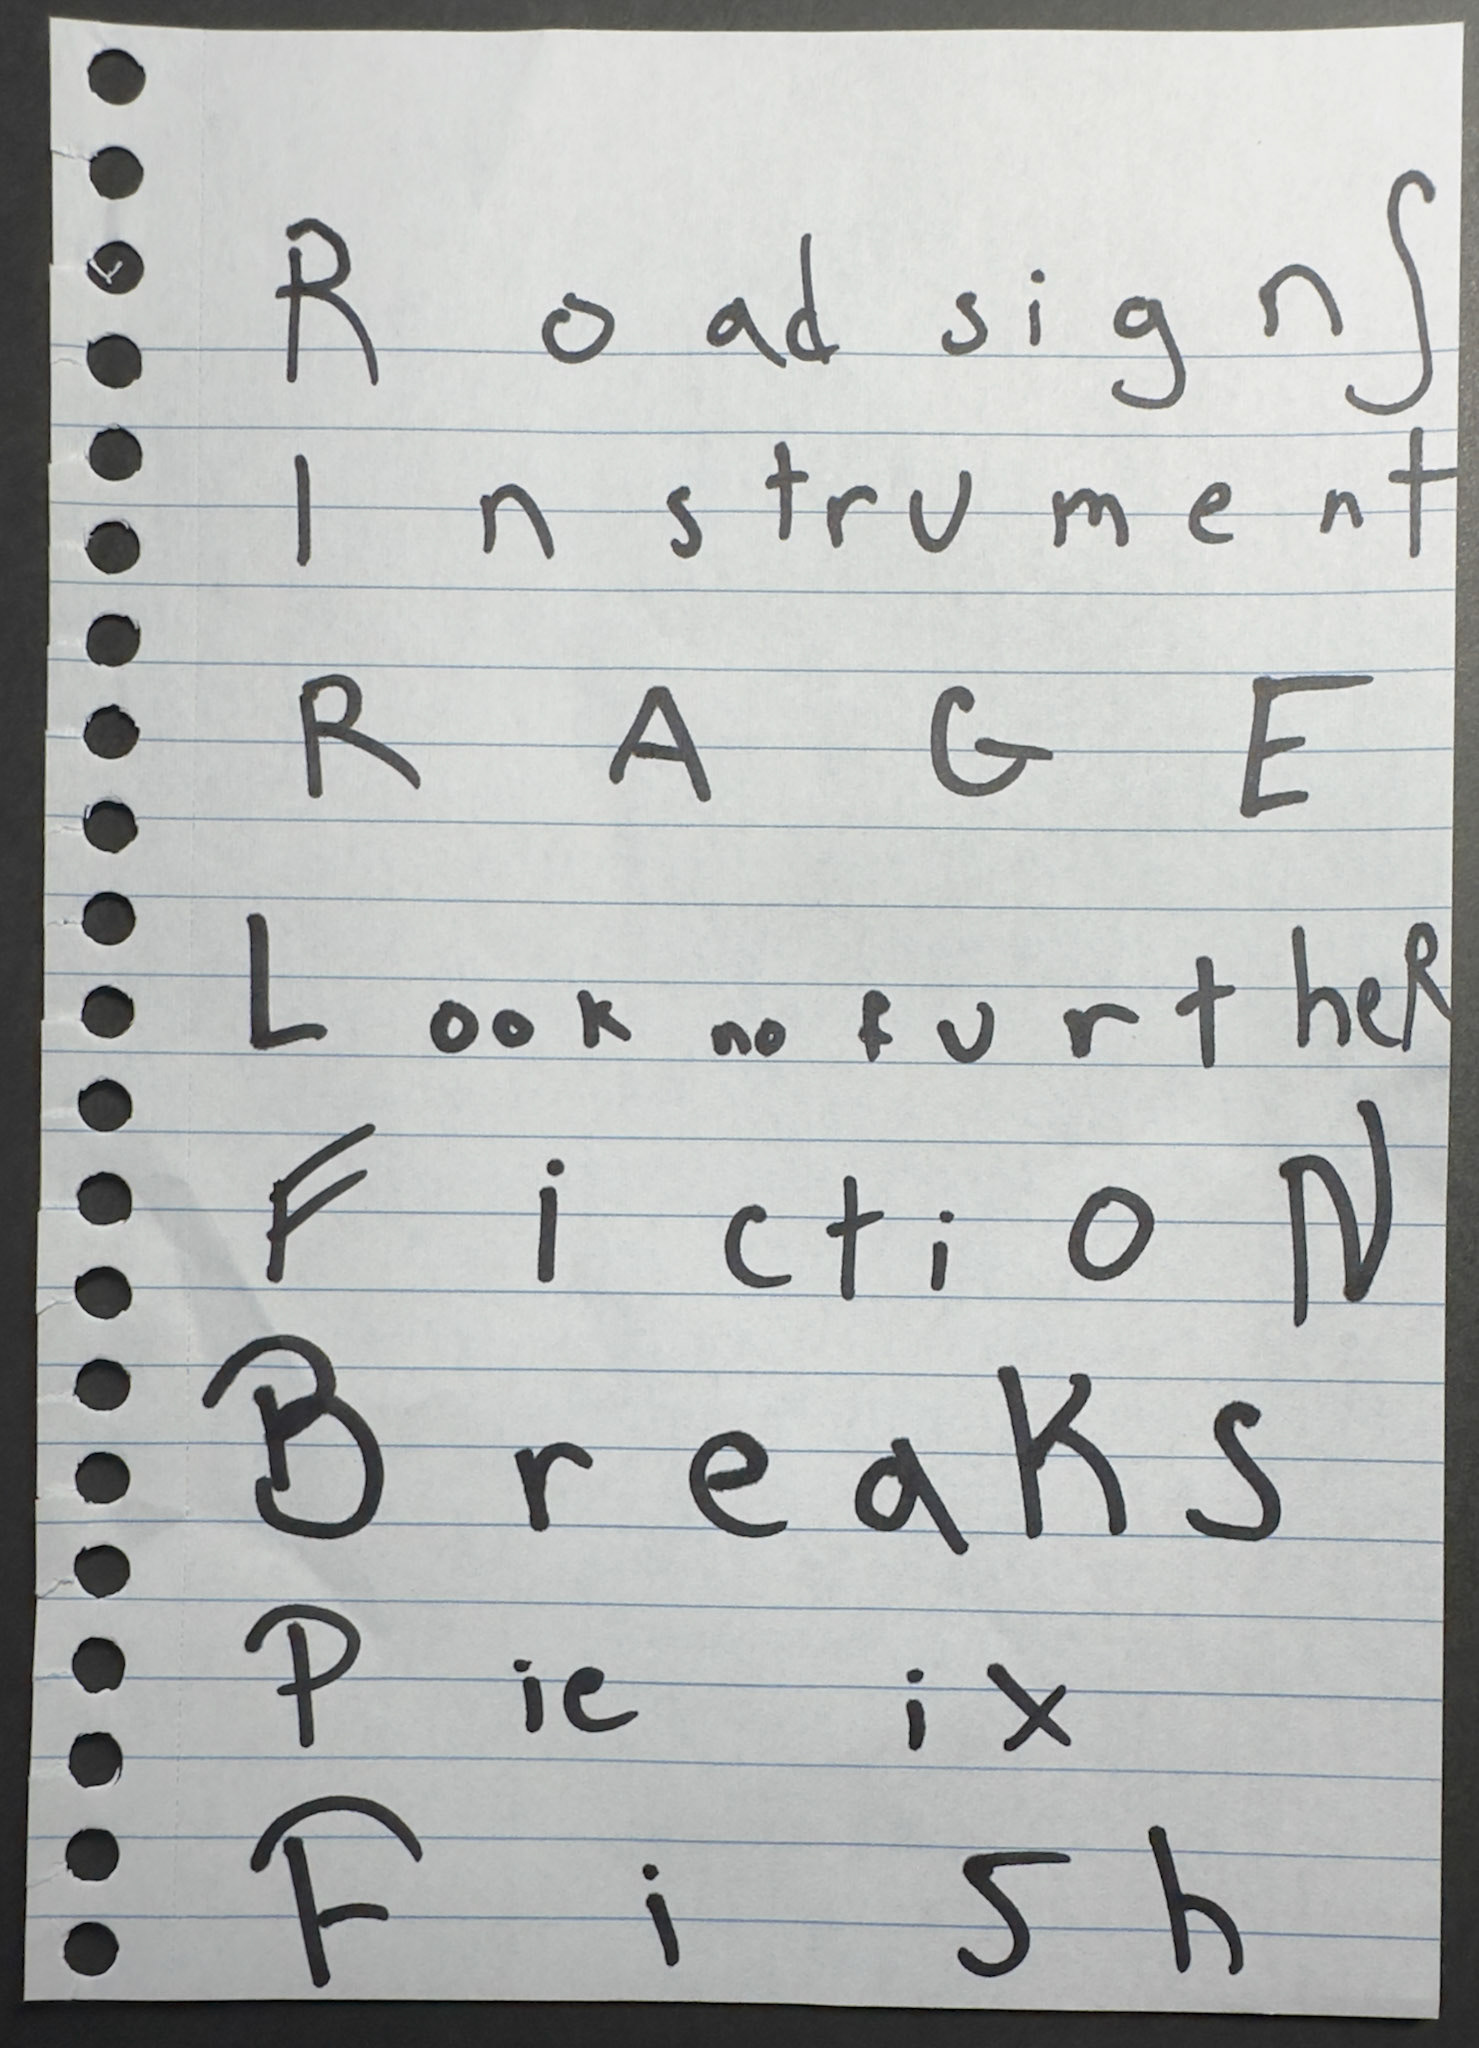 Road signs
Instrument
RAGE
Look no further
FictioN
BreaKS
Pie ix
Fish